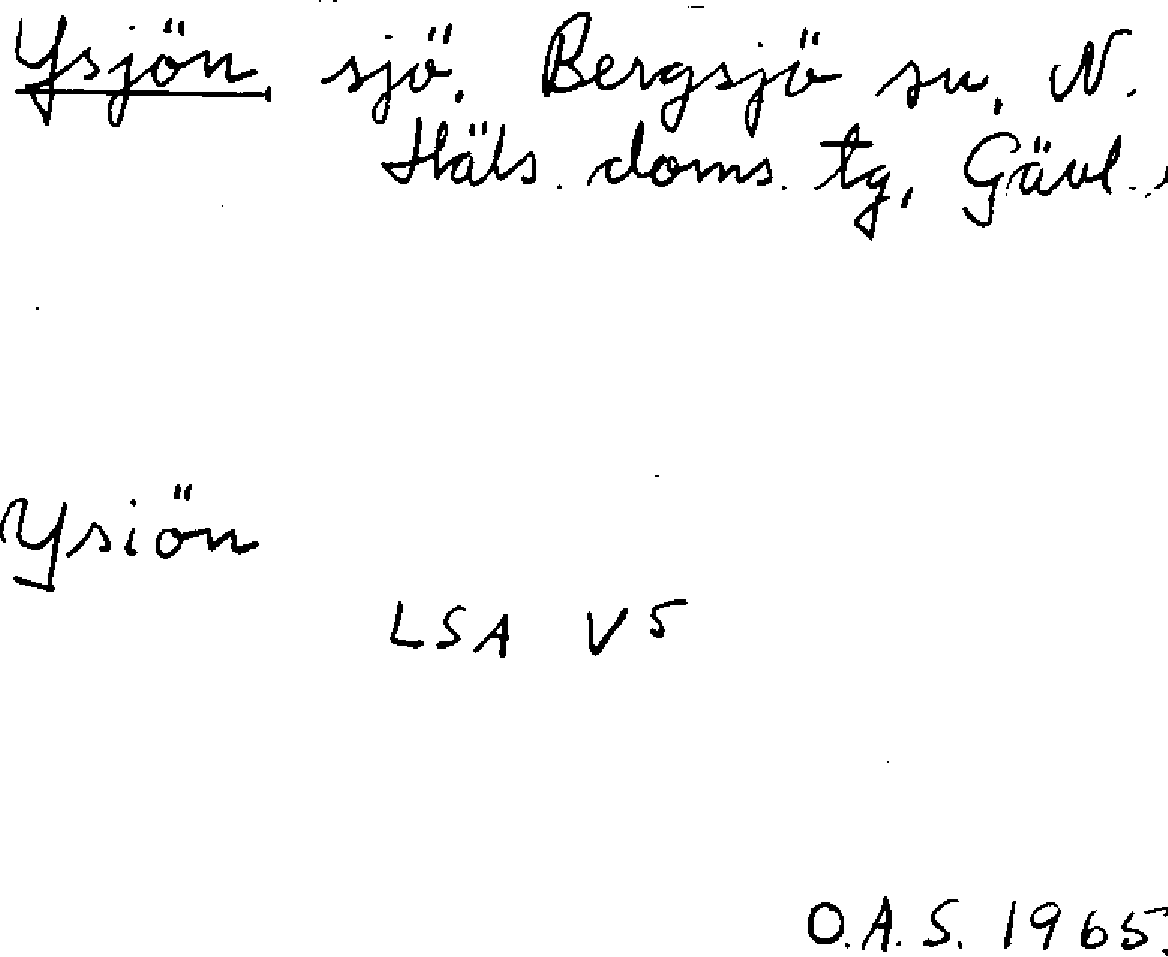 Ysjön sjö. Bergsjö sn, N.
Häls. doms. tg, Gävl.
Ysiön
LSA V5
O.A.S. 1965.